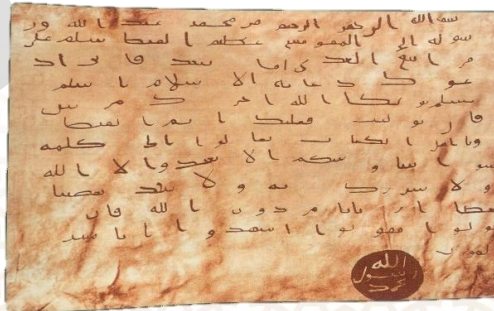 بسم الله الرحمن الرحيم من محمد عبد الله ور
سوله الى المقوقس عظيم القبط سلم على
من اتبع الهدى اما بعد فانى اد
عوك بدعاية الاسلام اسلم
تسلم يؤتك الله اجرك مرتين
فان توليت فعليك اثم القبط
ويا اهل الكتاب تعالوا الى كلمة
سوا بيننا وبينكم الا نعبد الا الله
ولا نشرك به ولا يتخذ بعضنا
بعضا اربابا من دون الله فان
تولوا فقولوا اشهدوا بانا مسلمون
الله
رسول
محمد